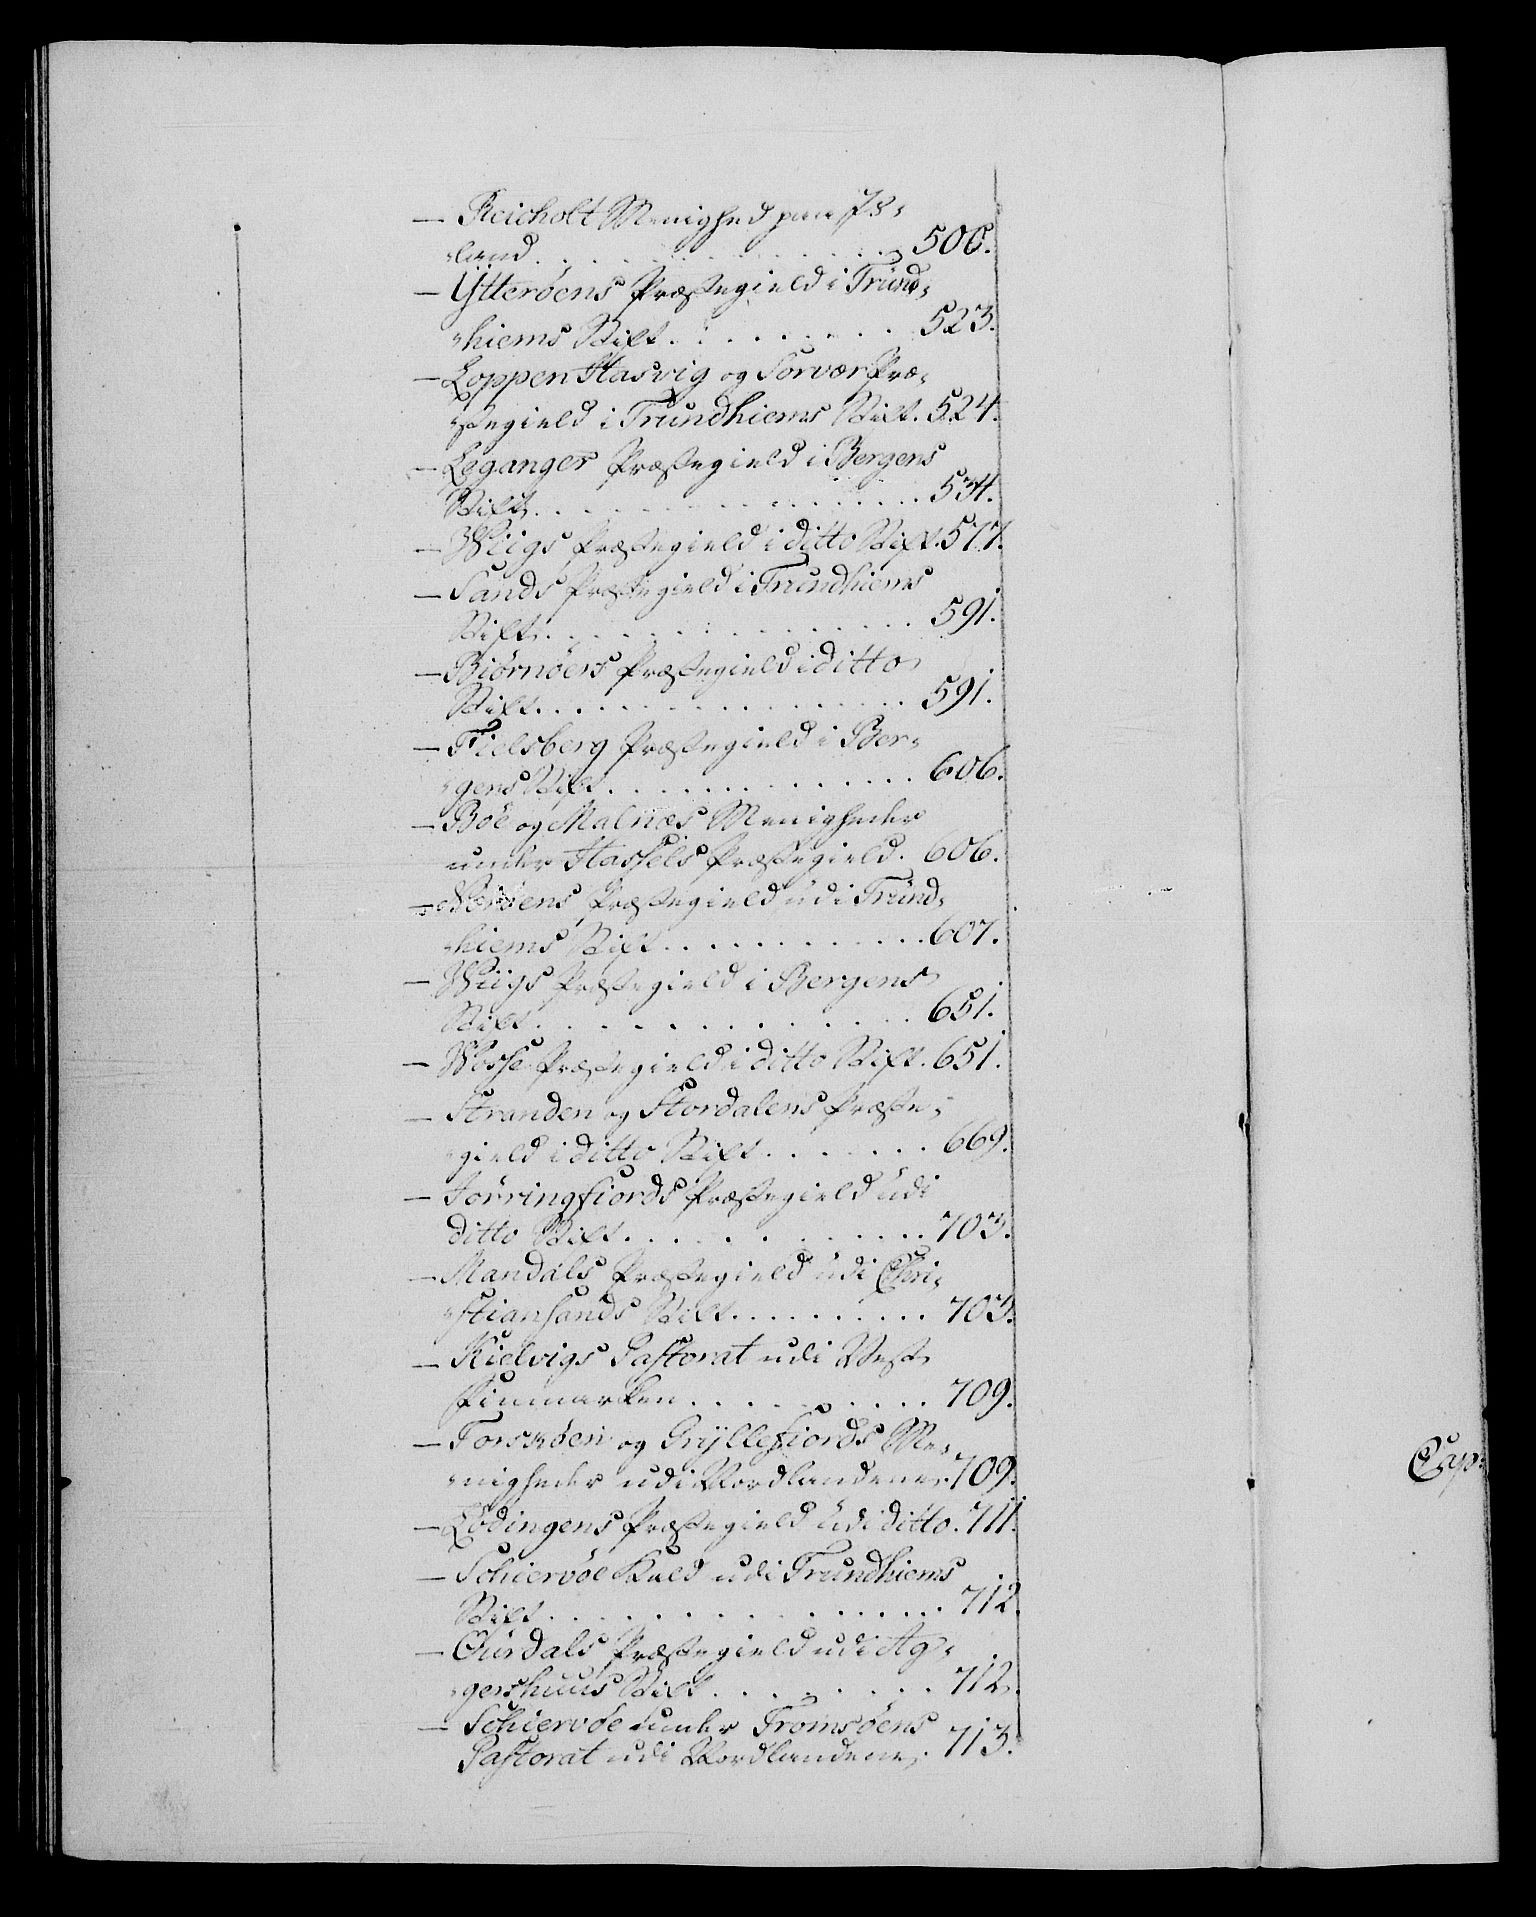 — Reicholt Menighed paa Is-
-land . . . . . . . . . . . . . . 506.
— Ytterøens Præstegield i Trund-
-hiems Stift . . . . . . . . . 523.
— Loppen Hasvig og Sørvær Præ-
-stegield i Trundhiems Stift. 524.
— Leganger Præstegield i Bergens
Stift . . . . . . . . . . . . . . . 534.
— Wiigs Præstegield i ditto Stift. 577.
— Sands Præstegield i Trundhiems
Stift . . . . . . . . . . . . . . . 591.
— Biørnøers Præstegield i ditto
Stift . . . . . . . . . . . . . . . 591.
— Fielsberg Præstegield i Ber-
-gens Stift . . . . . . . . . . . . 606.
— Bøe og Malnæs Menigheder
under Hassels Præstegield. 606.
— Præstegield udi Trund-
-hiems Stift . . . . . . . . . . 607.
— Wiigs Præstegield i Bergens
Stift . . . . . . . . . . . . . . . 651.
— Wosse Præstegield i ditto Stift. 651.
— Stranden og Stordalens Præste-
-gield i ditto Stift . . . . . . . 669.
— Jørringfiords Præstegield udi
ditto Stift . . . . . . . . . . . . 703.
— Mandals Præstegield udi Chri-
-stiansands Stift . . . . . . . . 703.
— Kielvigs Pastorat udi Vest
Finmarken . . . . . . . . . . 709.
— Torskøen og Gryllefiords Me-
-nigheder udi Nordlandene. 709.
— Lødingens Præstegield udi ditto. 711.
— Schiervøe Kald udi Trundhiems
Stift . . . . . . . . . . . . . . . 712.
— Ourdals Præstegield udi Ag-
-gershuus Stift . . . . . . . . . 712.
— Schiervøe under Tromsøens
Pastorat udi Nordlandene. 713.
Cap: